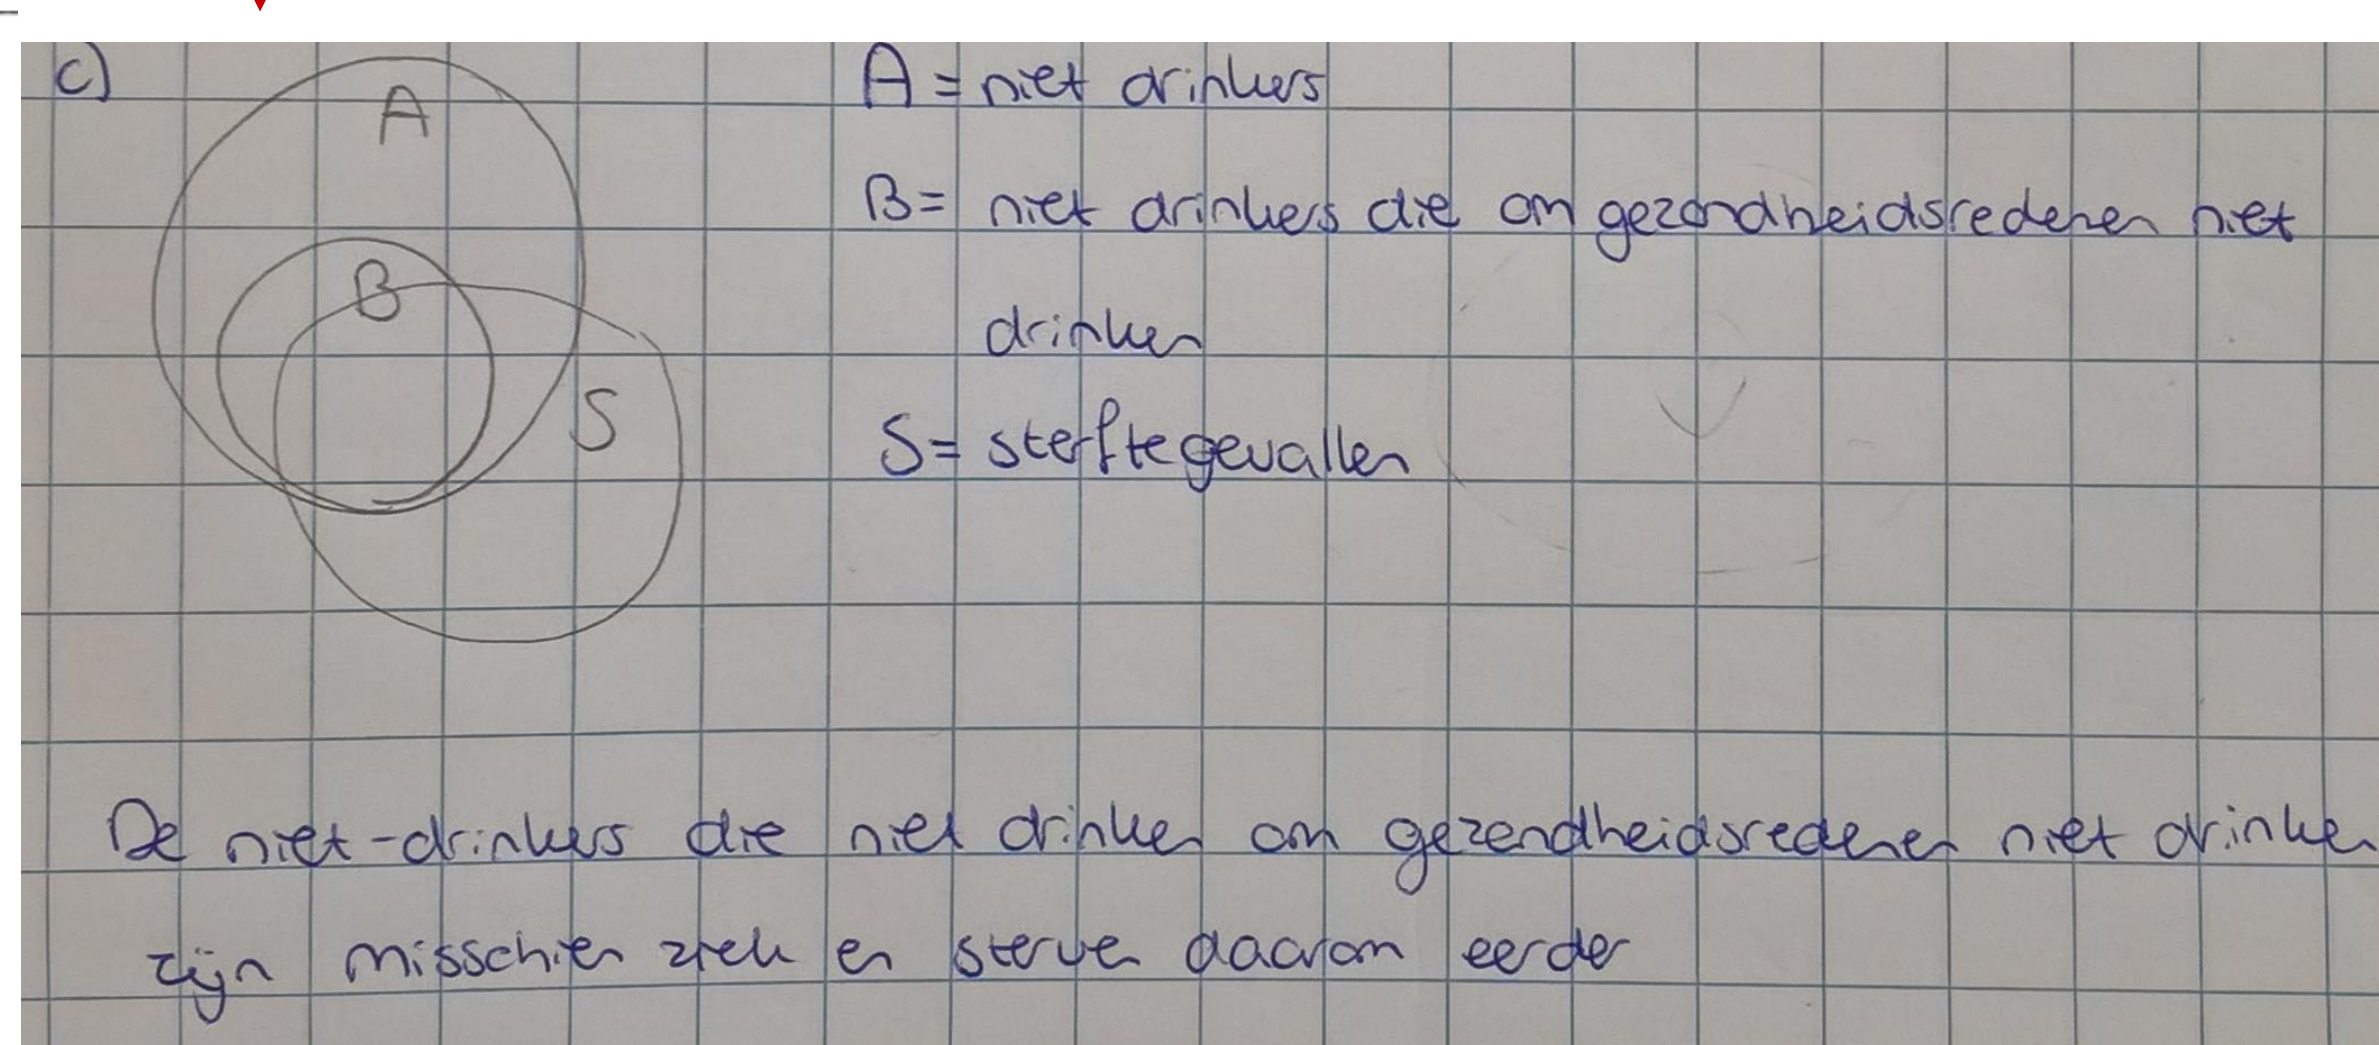 c)
A
B
S
A = niet drinkers
B = niet drinkers die om gezondheidsredenen niet
drinken
S = sterftegevallen
De niet-drinkers die niet drinken om gezendheidsredenen niet drinken
zijn misschien ziek en sterven daarom eerder